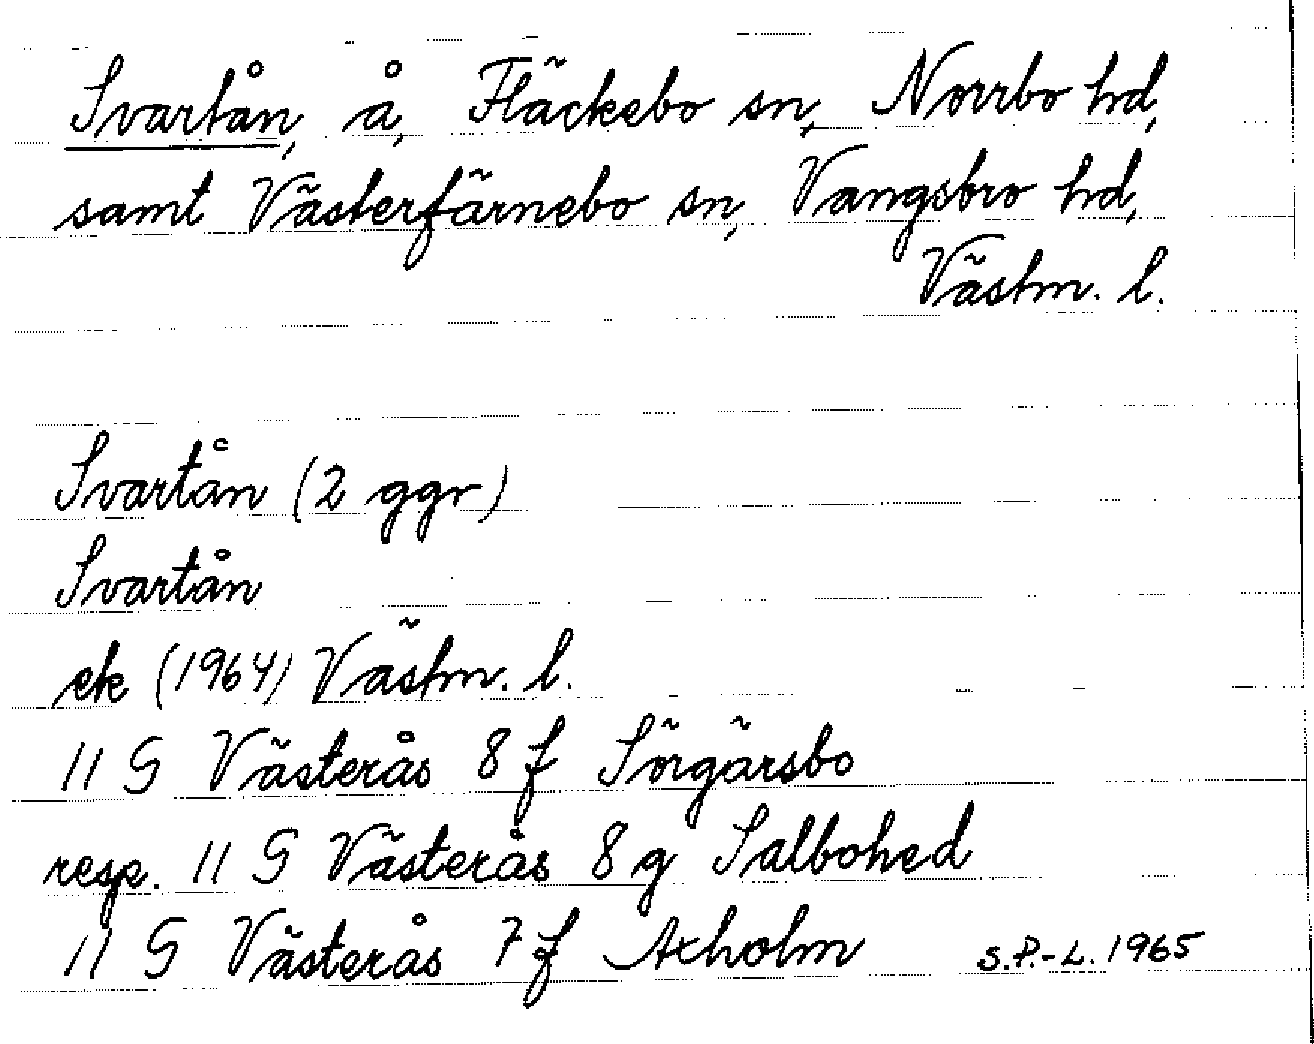 Svartån, å, Fläckebo sn, Norrbo hd,
samt Västerfärnebo sn, Vangsbro hd,
Västm. l.
Svartån (2 ggr)
Svartån
ek (1964) Västm. l.
11 G Västerås 8 f Sörgärsbo
resp. 11 G Västerås 8 g Salbohed
11 G Västerås 7 f Axholm S.P.-L. 1965